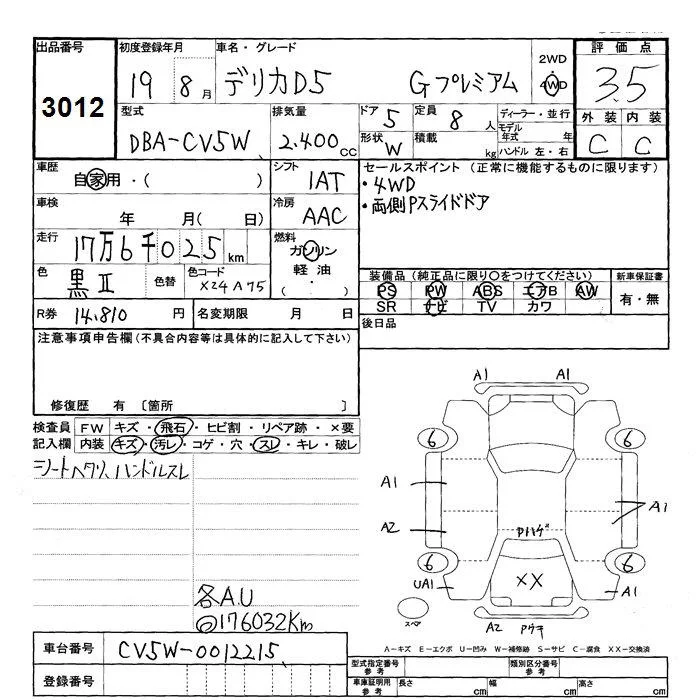 出品番号 初度登録年月 車名・グレード 2WD 評価点
3012 19 8月 デリカD5 Gプレミアム 4WD 3.5
型式 排気量 ドア 5 定員 8人 ディーラー・並行 外装 内装
DBA-CV5W 2.400cc 形状 W 積載 kg モデル年式 年 ハンドル 左・右 C C
車歴 自家用・( ) シフト 1AT セールスポイント (正常に機能するものに限ります)
・4WD
車検 年 月( 日) 冷房 AAC ・両側Pスライドドア
走行 17万6千025km 燃料 ガソリン
軽油
( ・ )
色 黒II 色替 色コード X24 A75 装備品(純正品に限り○をつけてください) 新車保証書
PS PW ABS エアB AW 有・無
SR ナビ TV カワ
R券 14,810円 名変期限 月 日 後日品
注意事項申告欄(不具合内容等は具体的に記入して下さい)
修復歴 有 〔箇所 〕
検査員 FW キズ・飛石・ヒビ割・リペア跡・×要
記入欄 内装 キズ・汚レ・コゲ・穴・スレ・キレ・破レ
シートヘタリ、ハンドルスレ
A1 A1
6 6
A1 A1
A2 Pハゲ
6 6
UA1 XX A1
スペア A2 Pウキ
各A.U
176032Km
A-キズ E-エクボ U-凹み W-補修跡 S-サビ C-腐食 XX-交換済
車台番号 CV5W-0012215
型式指定番号 参考 類別区分番号 参考
登録番号 車庫証明用 参考 長さ cm 幅 cm 高さ cm